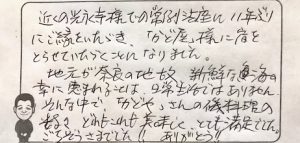 近くの光永寺様での常例法座に11年ぶり
にご縁をいただき、「かど屋」様に宿を
とらせていただくことになりました。
地元が奈良の地故、新鮮な海の
幸に恵まれることは、日常生活ではありません。
そんな中で、「かどや」さんの磯料理の
数々 どれもこれも美味しく、とても満足でした。
ごちそうさまでした!! ありがとう!!